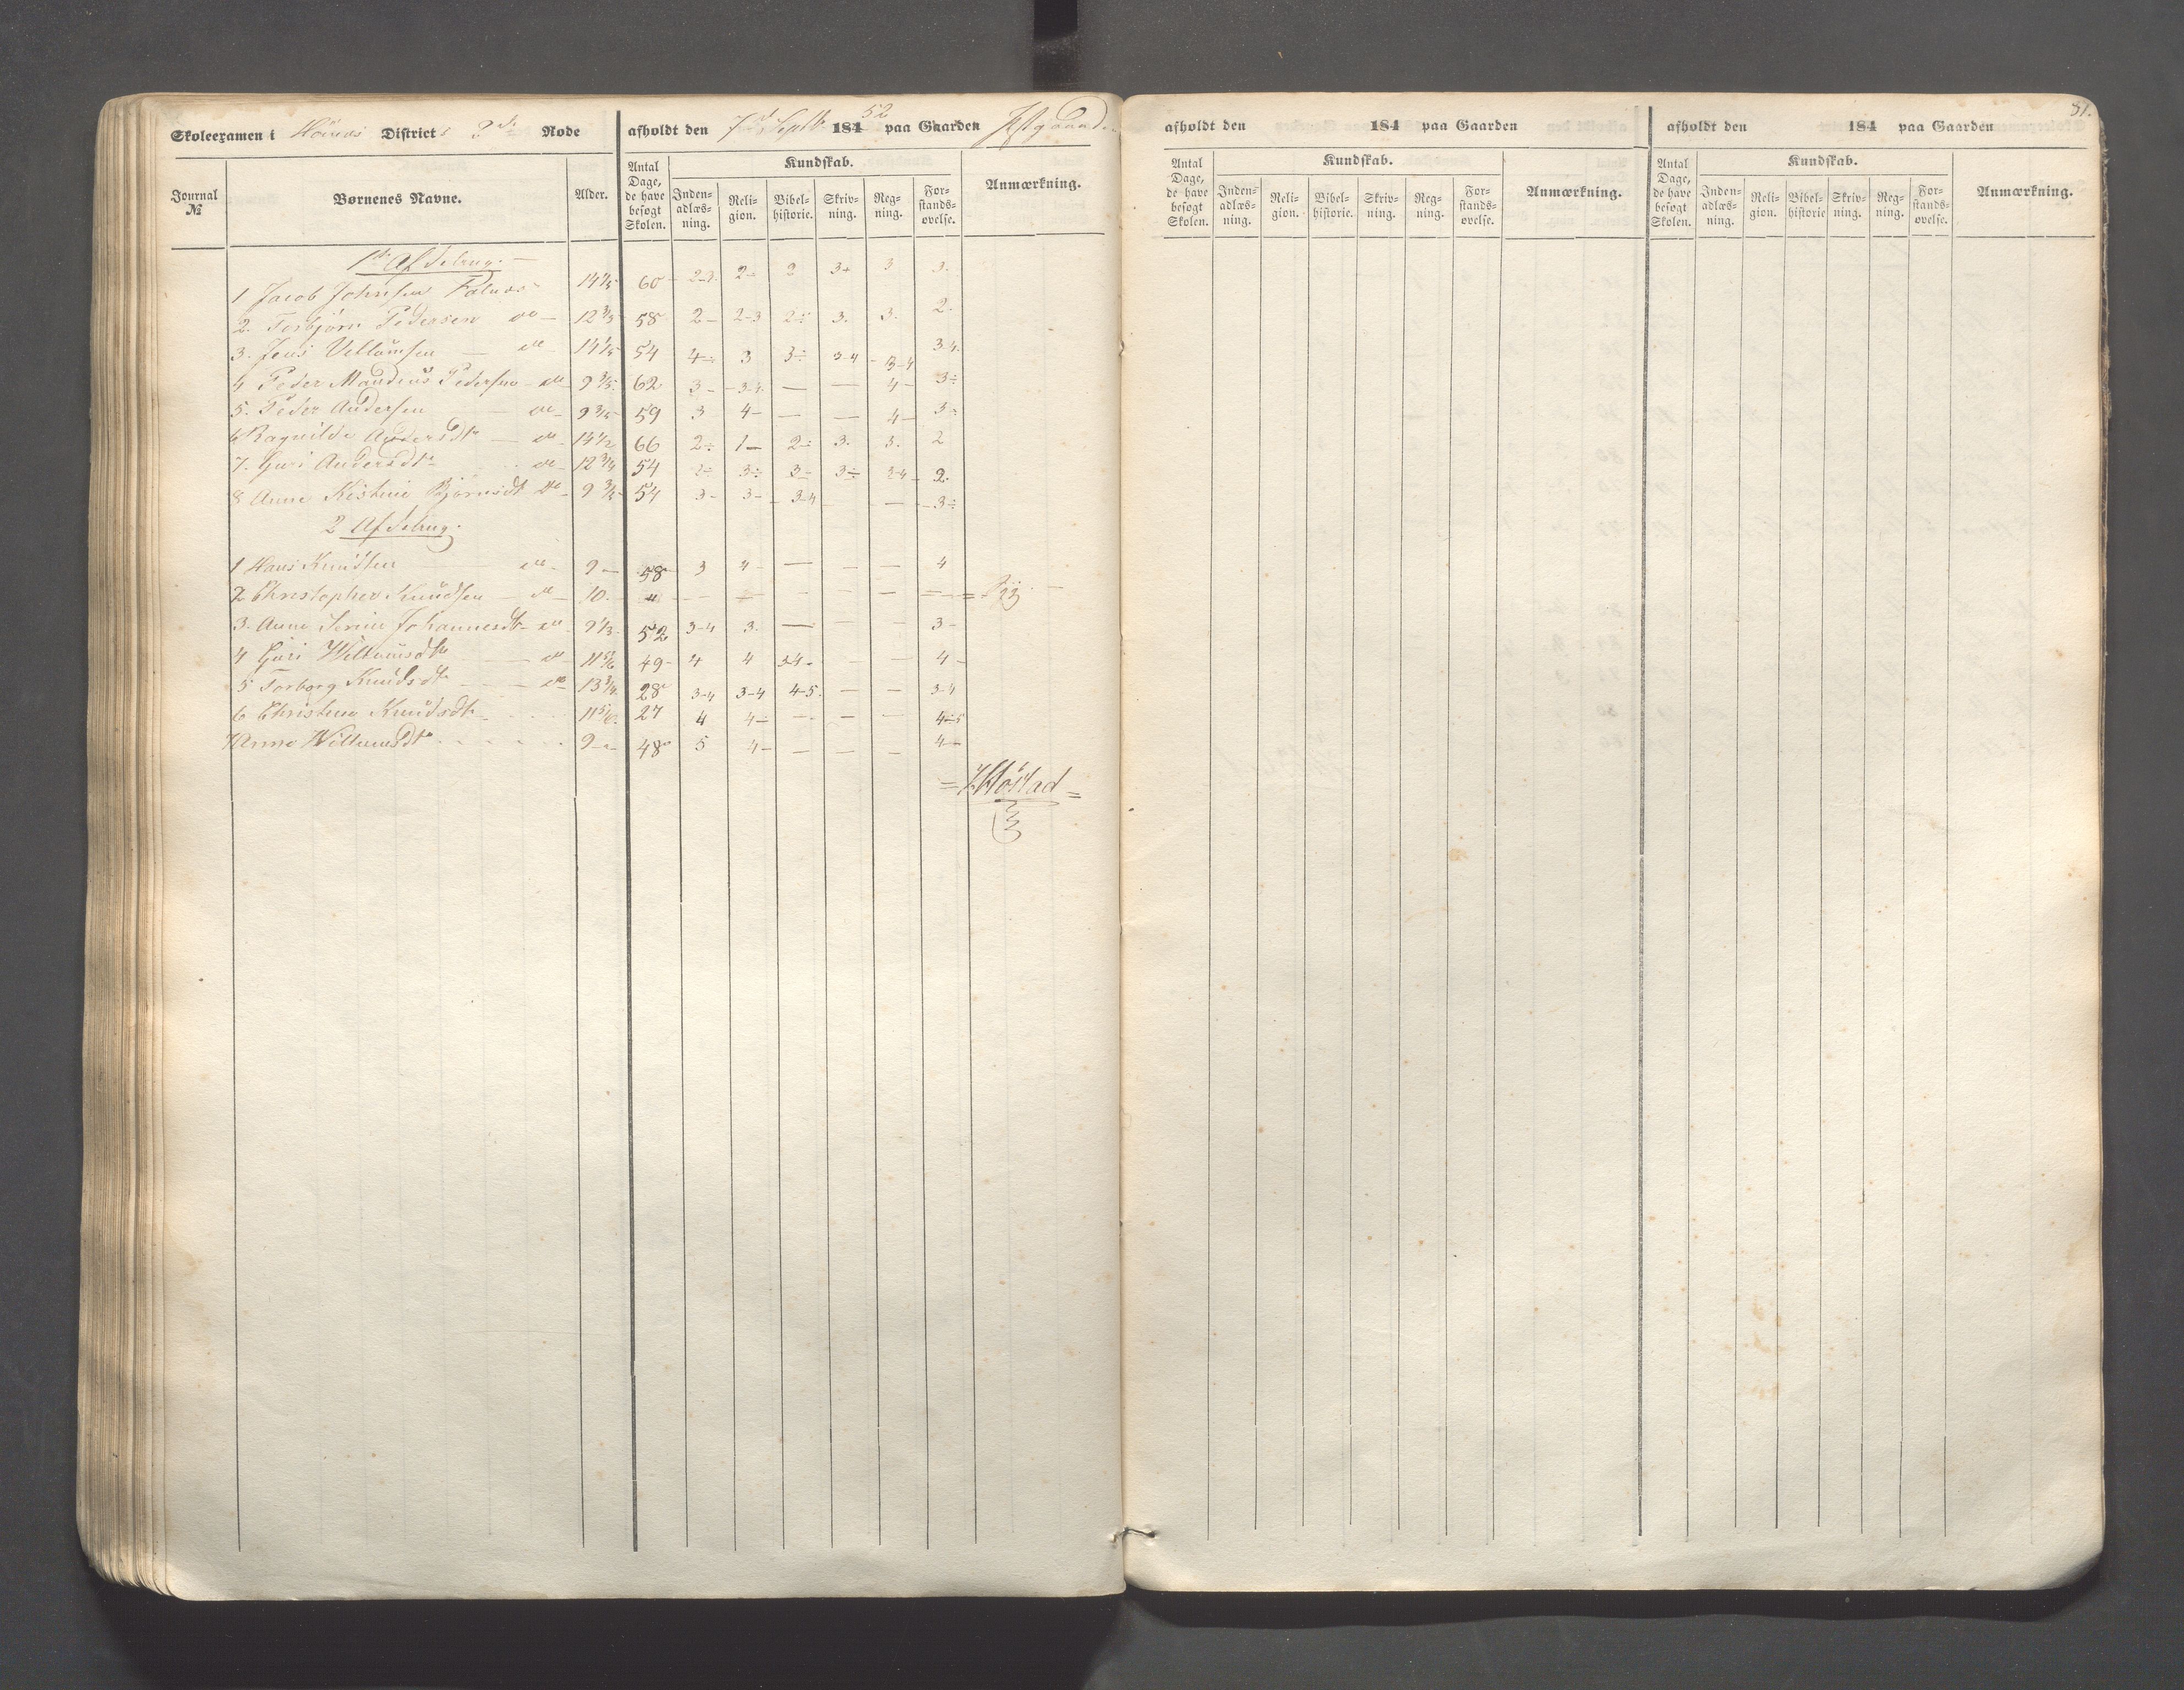 Skoleexamen i Høines District s 2de Rode afholdt den 7d Septbr 184 52 paa Gaarden
Journal № Børnenes Navne. Alder. Antal Dage, de have besøgt Skolen. Kundskab. Inden-adlæs-ning. Reli-gion. Bibel-historie. Skriv-ning. Reg-ning. For-stands-øvelse. Anmærkning.
1ste Afdeling. —
1 Jacob Johnsen 14 1/5 60 2-3. 2÷ 2 3+ 3 3.
2. Torbjörn Pedersen do — 12 3/5 58 2 — 2-3 2÷ 3. 3. 2.
3. Jens Vellumsen — do 14 1/5 54 4÷ 3 3÷ 3-4 3-4 3-4.
4 Peder Mandius Pedersen do 9 3/5 62 3 — 3-4. — — 4 — 3÷
5. Peder Andersen — do 9 3/5 59 3 4 — — — 4 — 3÷
6 Ragnilde Andersdtr — do 14 1/2 66 2÷ 1 — 2÷ 3. 3. 2
7. Guri Andersdtr do 12 3/4 54 2÷ 3÷ 3 — 3÷ 3-4 2.
8 Anne Kistine Björnsdt do 9 3/5 54 3 — 3 — 3-4 — 3÷
2 Afdeling.
1 Hans Knudsen do 9 — 58 3 4 — — — — 4
2 Christopher Knudsen — do 10. " — — — — — — Syg. —
3. Anne Serine Johannesdt do 9 1/3 52 3-4 3. — — — 3 —
4 Guri Willumsdtr — do 11 5/6 49 4 4 3-4 — — 4 —
5 Torborg Knudsdtr — do 13 3/4 28 3-4 3-4 4-5. — — 3-4
6 Christine Knudsdtr 11 5/6 27 4 4÷ — — — 4-5
7 Anne Willumsdtr 9 — 48 5 4 — — — — 4 —
81.
afholdt den 184 paa Gaarden afholdt den 184 paa Gaarden
Antal Dage, de have besøgt Skolen. Kundskab. Inden-adlæs-ning. Reli-gion. Bibel-historie. Skriv-ning. Reg-ning. For-stands-øvelse. Anmærkning. Antal Dage, de have besøgt Skolen. Kundskab. Inden-adlæs-ning. Reli-gion. Bibel-historie Skriv-ning. Reg-ning. For-stands-øvelse. Anmærkning.